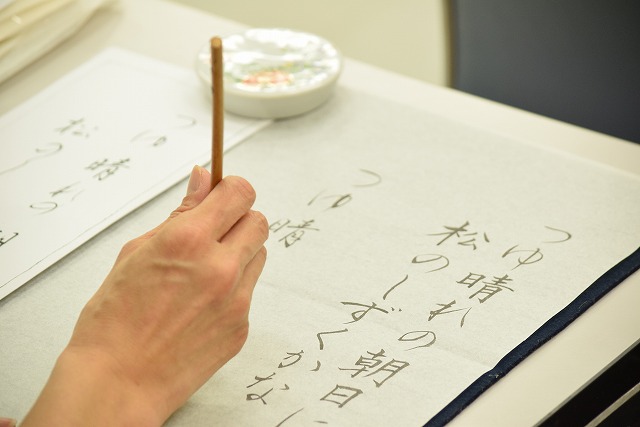 つゆ晴れの朝日に
松のしずくかな
つゆ晴
つゆ晴れの
松のし